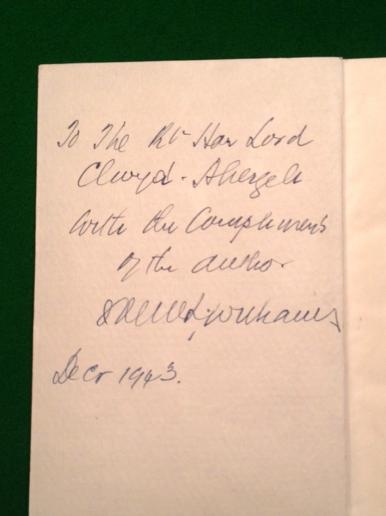 To The Rt Hon Lord
Clwyd - Abergele
With the Compliments
of the author
Decr 1943.